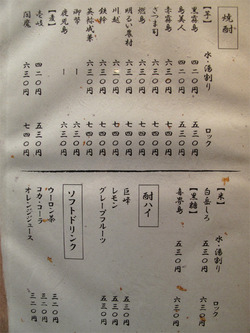 焼酎
水・湯割り ロック
【芋】
黒霧島 四二〇円 五三〇円
島美人 四二〇円 五三〇円
赤霧島 六三〇円 七四〇円
さつま司 六三〇円 七四〇円
燃島 六三〇円 七四〇円
明るい農村 六三〇円 七四〇円
川越 六三〇円 七四〇円
鉄幹 六三〇円 七四〇円
英祐成兼
御幣
鹿児島
【麦】
壱岐 四二〇円 五三〇円
閻魔 六三〇円 七四〇円
水・湯割り ロック
【米】
白岳しろ 五三〇円 六三〇円
【黒糖】
喜界島 五三〇円 六三〇円
酎ハイ
巨峰 五三〇円
レモン 五三〇円
グレープフルーツ 五三〇円
ソフトドリンク
ウーロン茶 三二〇円
コカ・コーラ 三二〇円
オレンジジュース 三二〇円